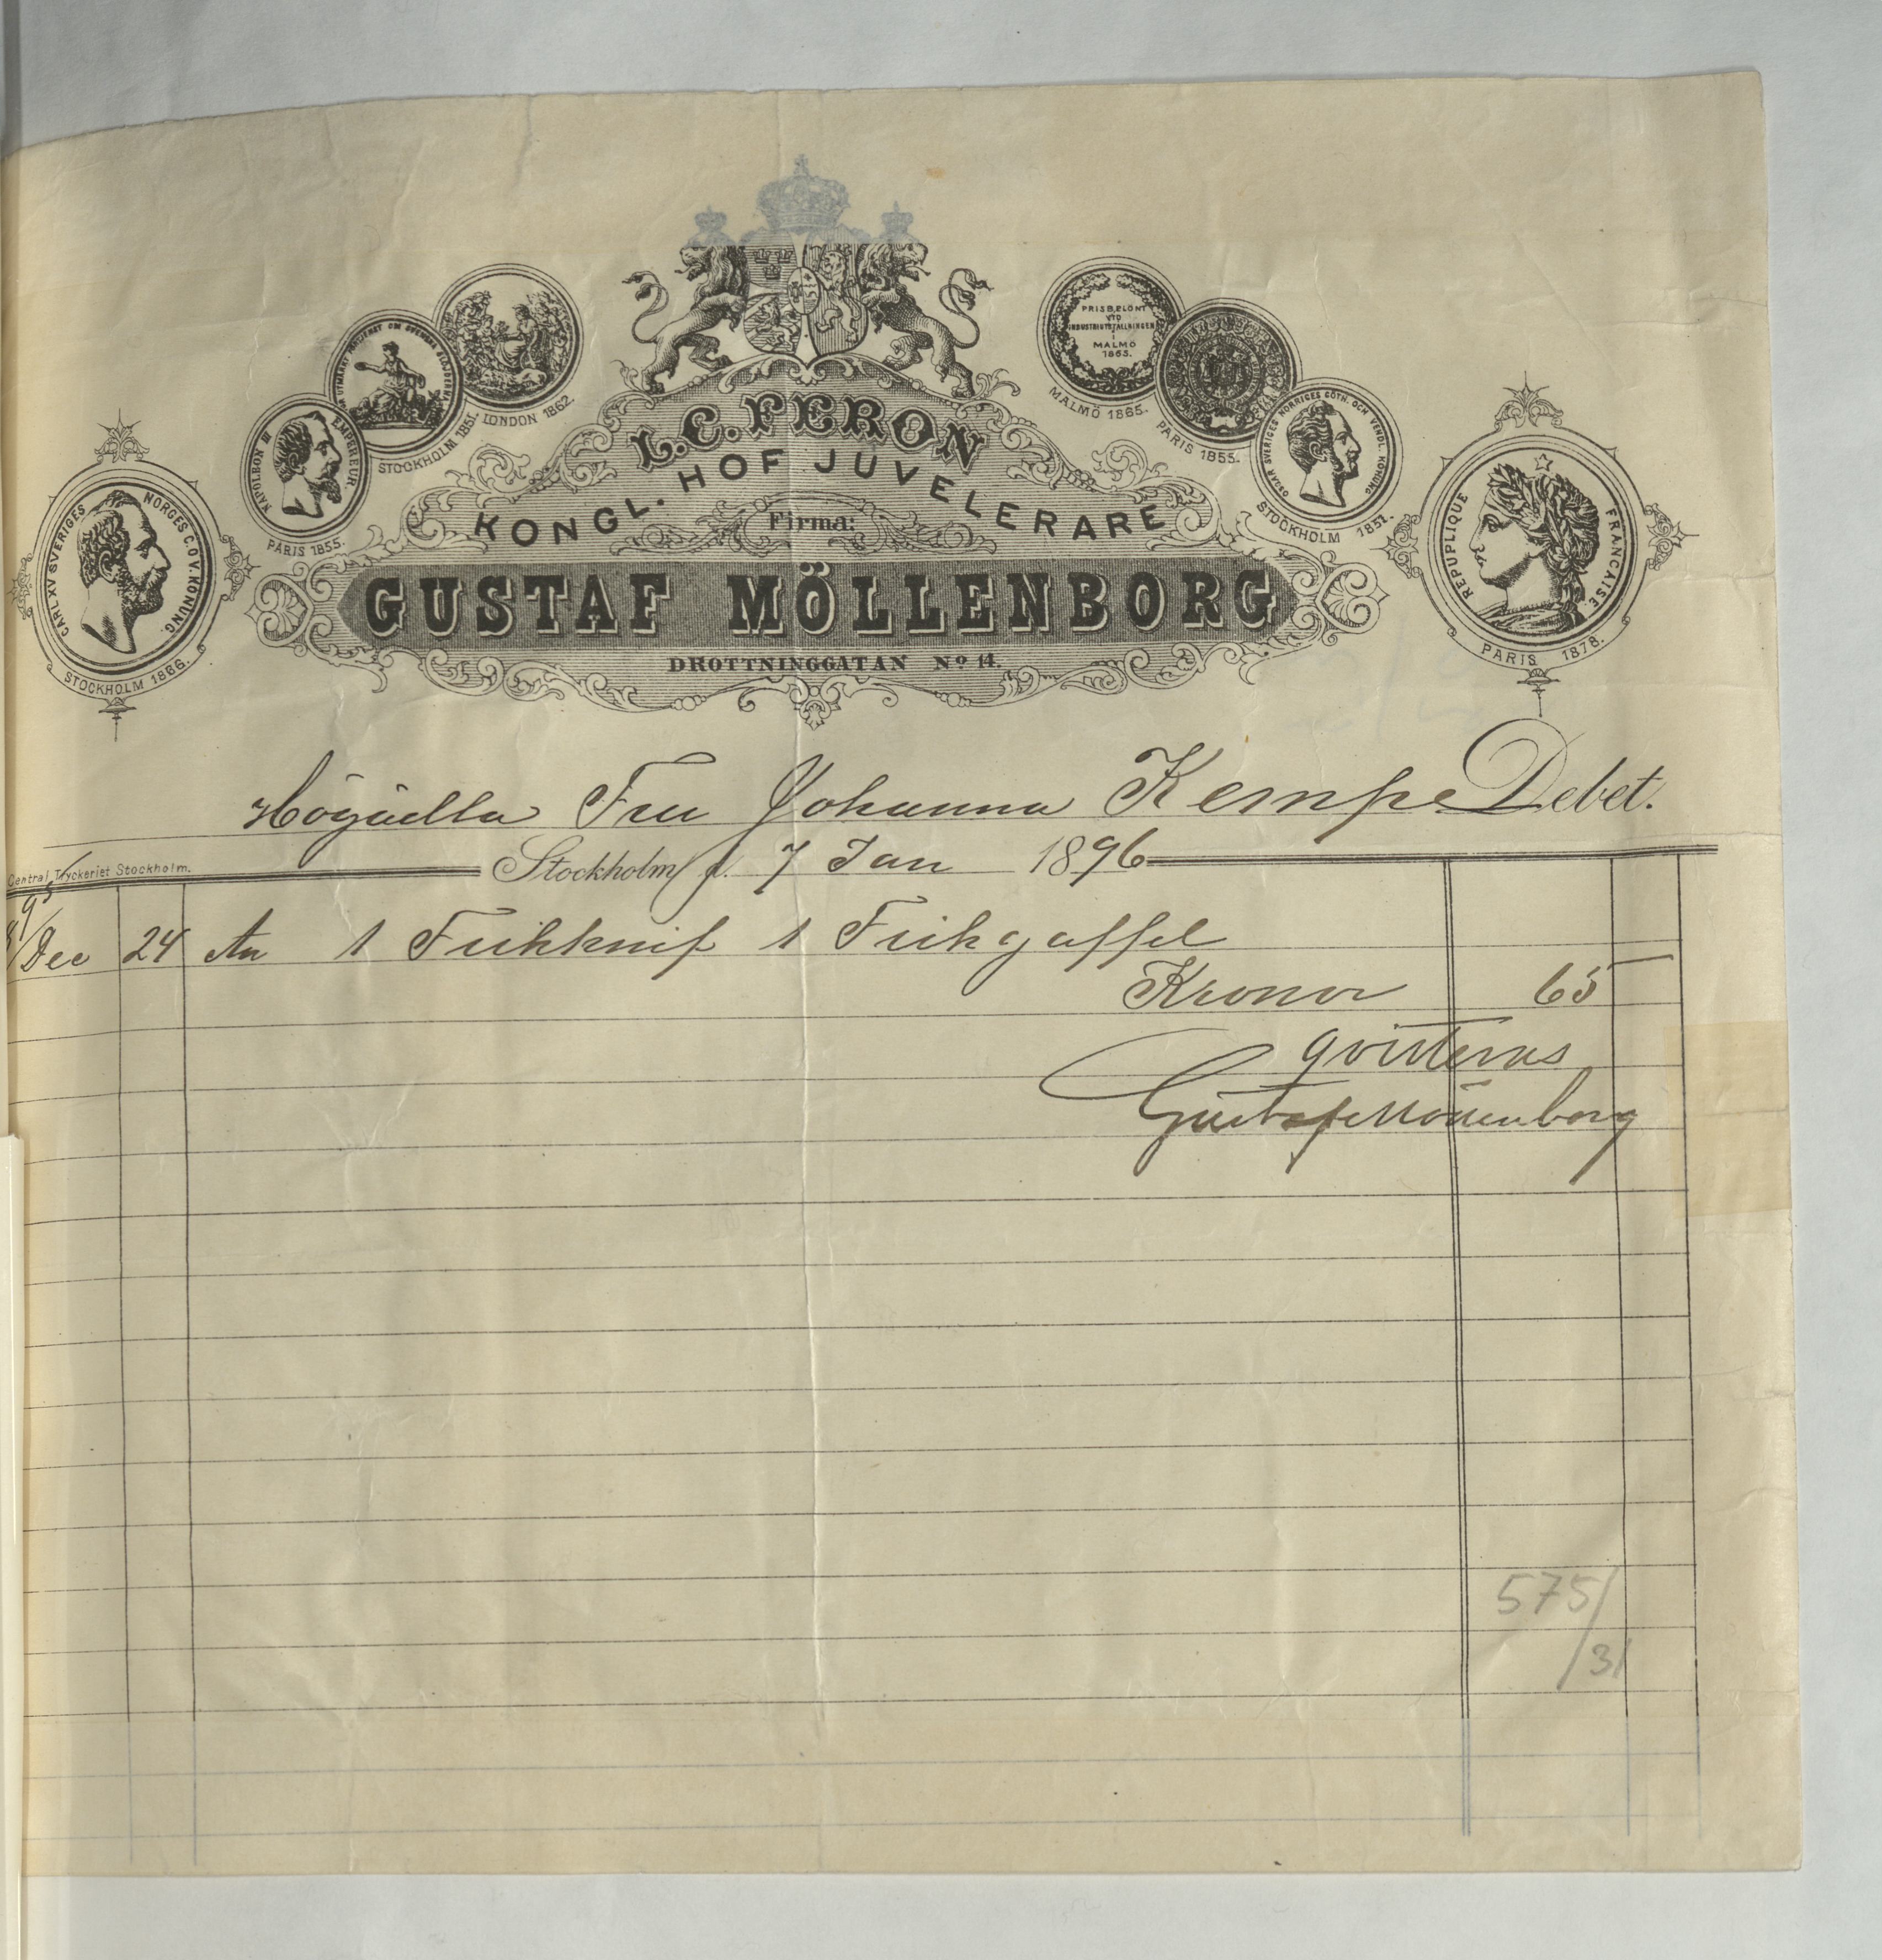 L. C. FERON
KONGL. HOF JUVELERARE
Firma:
GUSTAF MÖLLENBORG
DROTTNINGGATAN Nº 14.
CARL XV SVERIGES NORGES G. O V. KONUNG.
STOCKHOLM 1866.
NAPOLEON III EMPEREUR
PARIS 1855.
STOCKHOLM 1851.
LONDON 1862.
PRISBELÖNT
VID
INDUSTRIUTSTÄLLNINGEN
I
MALMÖ
1865.
MALMÖ 1865.
PARIS 1855.
OSCAR SVERIGES NORRIGES GÖTH. OCH VEND. KONUNG
STOCKHOLM 1851.
REPUPLIQUE FRANCAISE.
PARIS 1878.
Högädla Fru Johanna Kempe Debet.
Central Tryckeriet Stockholm.
Stockholm d. 7 Jan 1896
95
Dec 24 An 1 Fiskknif 1 Fiskgaffel
Kronor 65
qvitteras
Gustaf Möllenborg
575/
/31